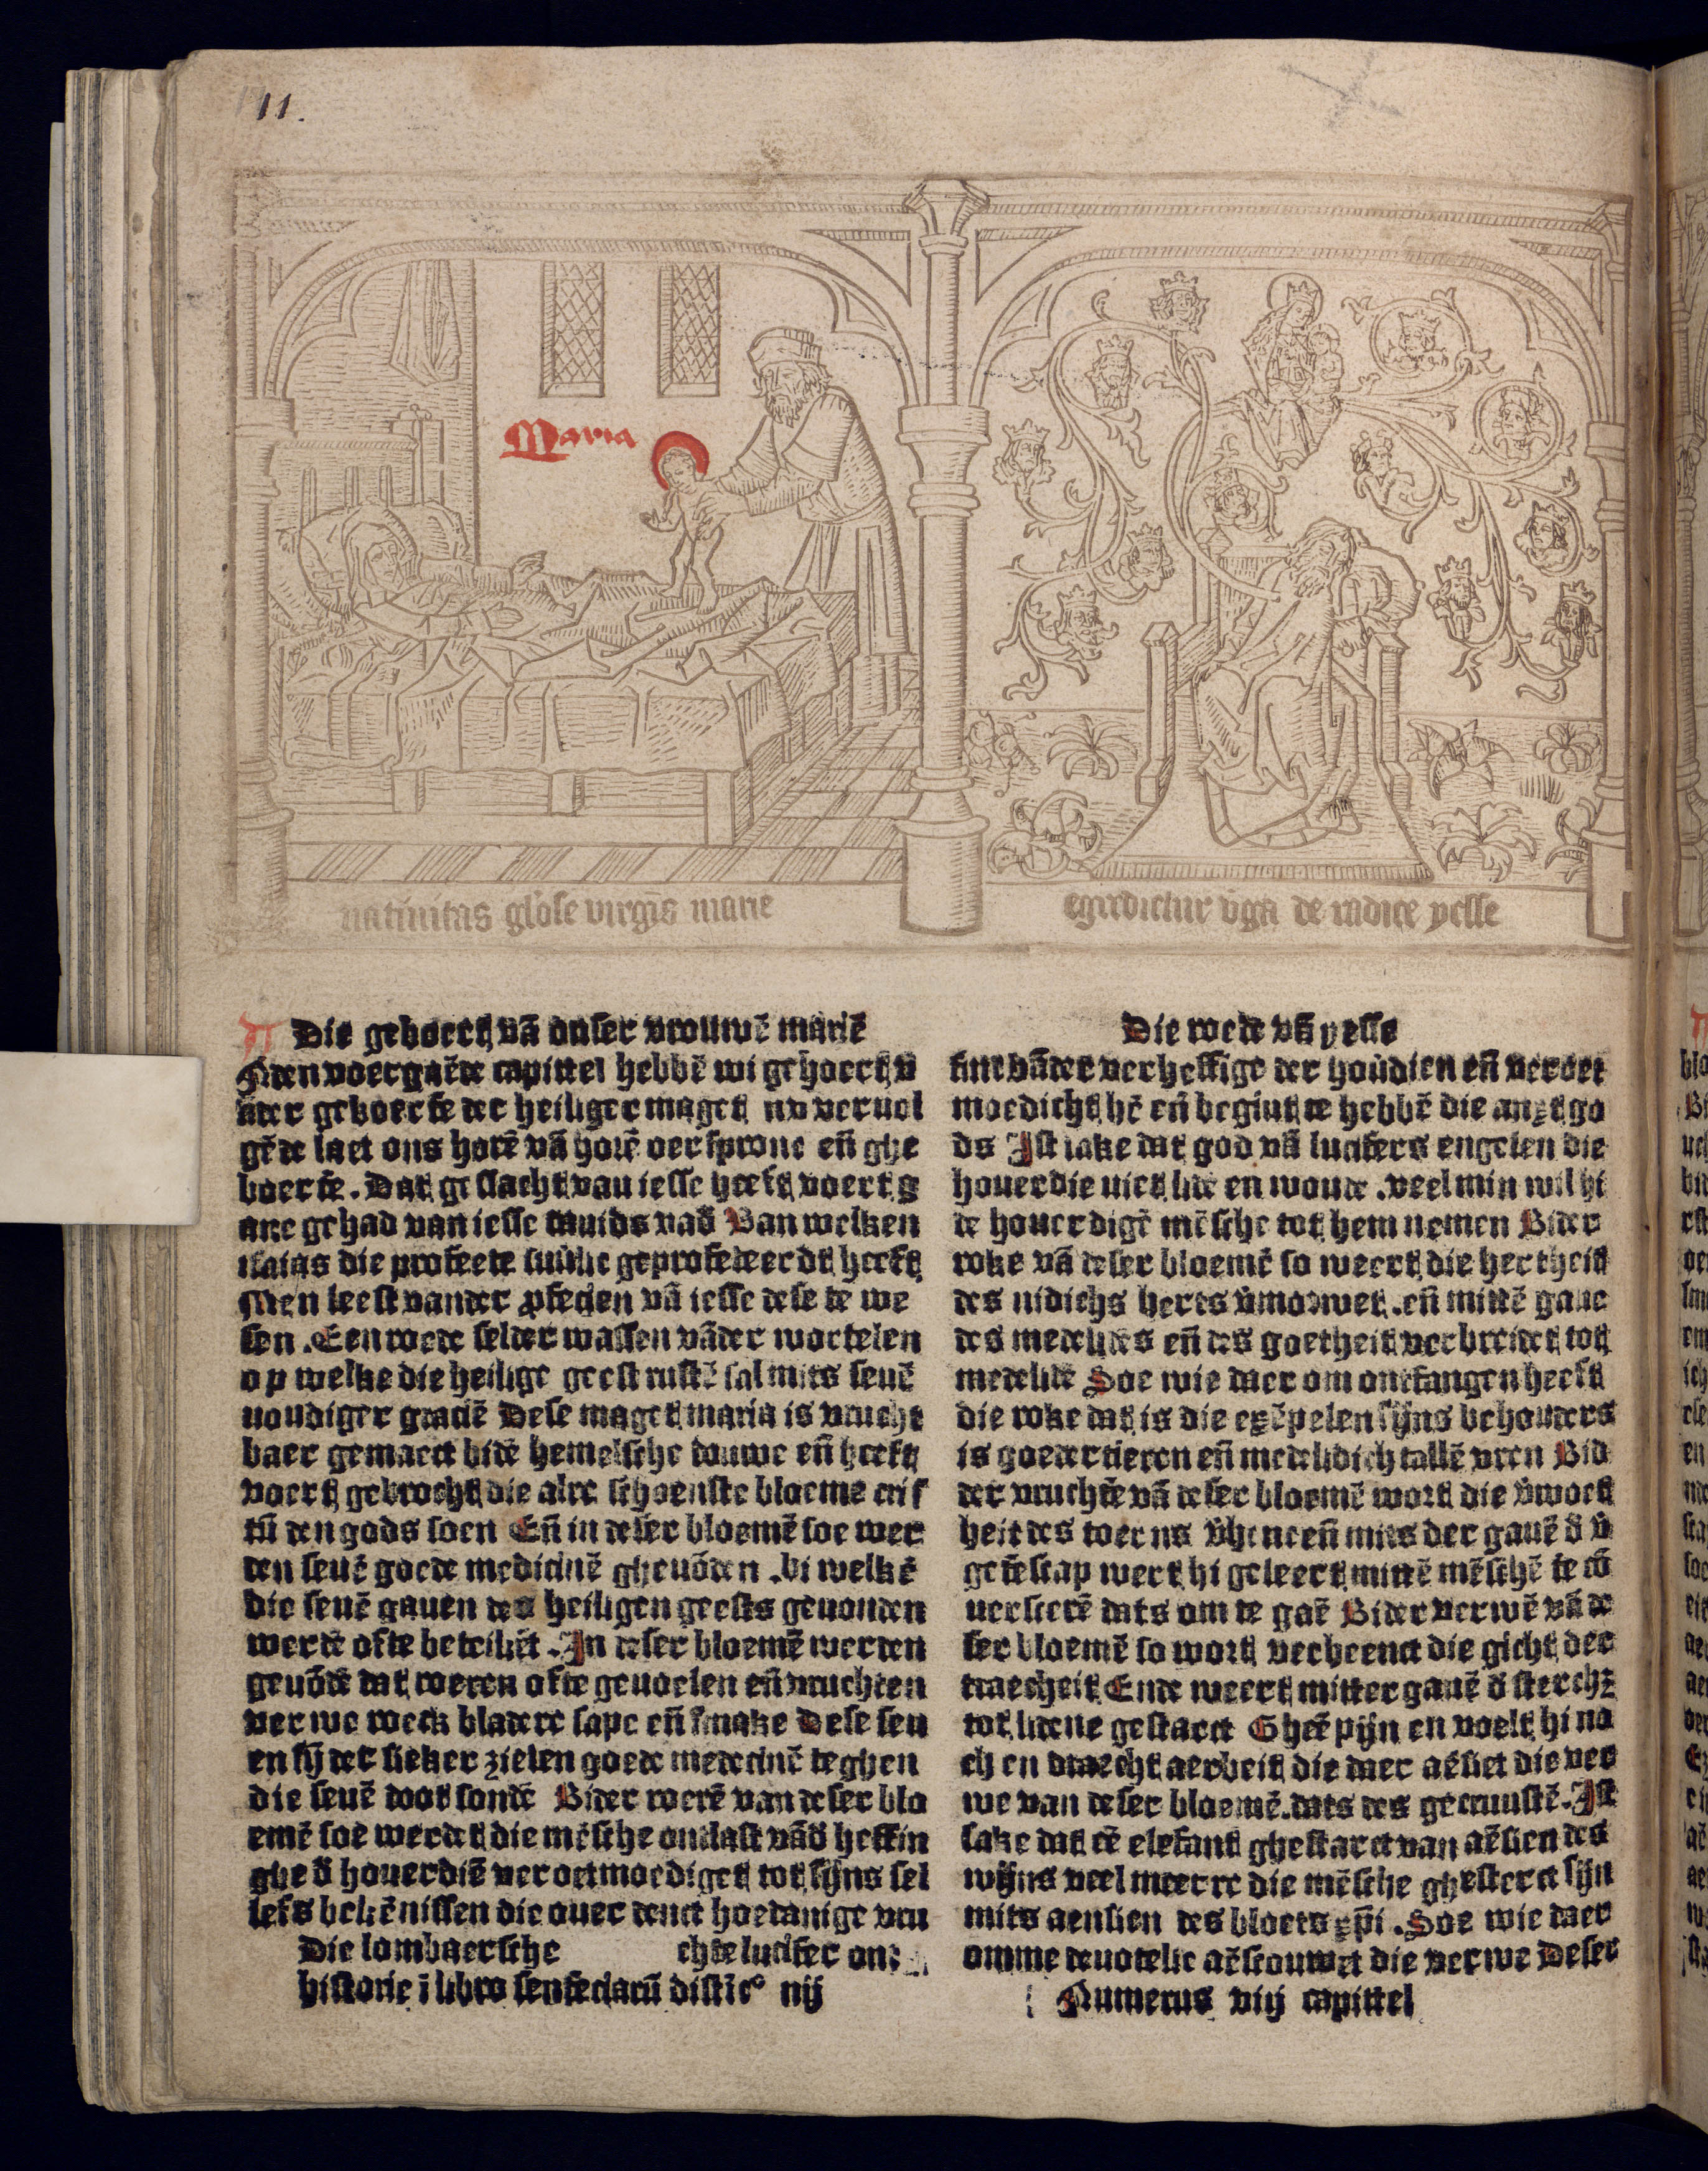 11.
Maria
natiuitas gl̄ose virgīs marie
egredietur v̄ga de radice yesse
Die geboert vā onser vrouwē mariē
Inden voergaēde capittel hebbē wi gehoert v
āder geboerte der heiliger maget nv veruol
gēde laet ons horē vā horē oersprone eñ ghe
boerte . Dat geslacht van iesse heeft voert g
ane gehad van iesse dauids vad̄ Van welken
isaias die profeete sulke geprofeteerdt heeft
Men leest vander ꝓfecien vā iesse dese te we
sen . Een roede selder wassen vāder wortelen
op welke die heilige geest rustē sal mits seuē
uoudiger graciē Dese maget maria is vrucht
baer gemaect bidē hemelsche douwe eñ heeft
voert gebrocht die alre schoenste bloeme cris
tū den gods soen Eñ in deser bloemē soe wer
den seuē goede medicinē gheuōden . bi welkē
die seuē gauen des heiligen geests geuonden
werdē ofte beteikēt . In deser bloemē werden
geuōdē dat weren ofte geuoelen eñ vruchten
verwe roeck bladere sape eñ smake Dese seu
en sij der sieker zielen goede medecinē teghen
die seuē doot sondē Bider roerē van deser blo
emē soe werdet die mēsche ontlast vād̄ heffin
ghe d̄ houerdiē veroetmoediget tot sijns sel
lefs bekēnissen die ouer denct hoedanige vru
Die lombaersche chte lucifer ont
historie ī libro sentēciarū distīc° nij
Die roede vā yesse
finc vāder verheffige der houdien eñ veroet
moedicht hē eñ begint te hebbē die anxt go
ds Ist sake dat god vā lucifers engelen die
houerdie niet lide en woude . veel min wil hi
de houerdigē mēsche tot hem nemen Bider
roke vā deser bloemē so weert die hertheit
des nidichs herts v̄morwet . eñ mittē gaue
des medelidēs eñ des goetheit verbreidet tot
medelidē Soe wie daer om ontfangen heeft
die roke dat is die exēpelen sijns behouders
is goedertieren eñ medelidich tallē vren Bid
der vruchtē vā deser bloemē wort die v̄woet
heit des toerns
getēscap wert hi geleert mittē mēschē te cō
uerserē dats om te gaē Bider verwē vā de
ser bloemē so wort verbeenct die gicht der
traecheit Ende weert mitter gauē d̄ stercht
tot lidene gestarct Gheē pijn en voelt hi no
ch en vraecht aerbeit die daer aēsiet die ver
we van deser bloemē . dats des gecruustē . Ist
sake dat eē elefant ghestarct van aēsien des
wijns veel meerre die mēsche ghesterct sijn
mits aensien des bloets xp̄i . Soe wie daer
omme deuotelic aēscouwet die verwe Deser
Numerus viij capittel